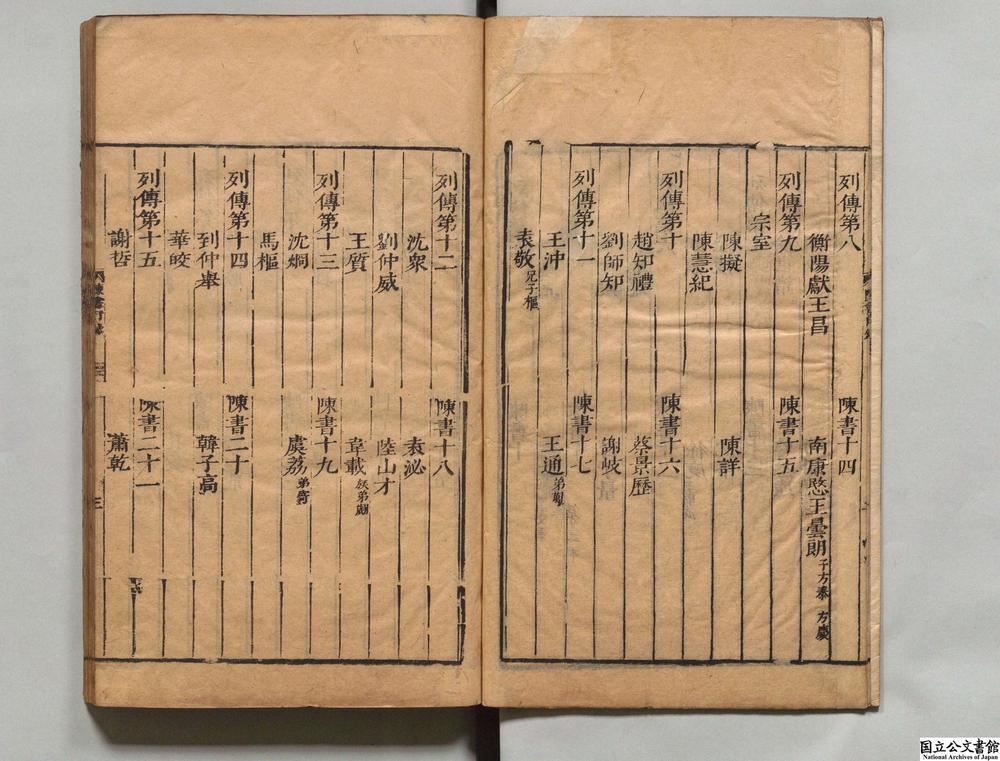 列傳第八 陳書十四
衡陽獻王昌 南康愍王曇朗 子方泰 方慶
列傳第九 陳書十五
宗室
陳擬 陳詳
陳慧紀
列傳第十 陳書十六
趙知禮 蔡景歷
劉師知 謝岐
列傳第十一 陳書十七
王沖 王通 弟勱
袁敬 兄子樞
列傳第十二 陳書十八
沈衆 袁泌
劉仲威 陸山才
王質 韋載 族弟翽
列傳第十三 陳書十九
沈烱 虞荔 弟寄
馬樞
列傳第十四 陳書二十
到仲舉 韓子高
華皎
列傳第十五 陳書二十一
謝哲 蕭乾
陳書目錄 三
国立公文書館
National Archives of Japan